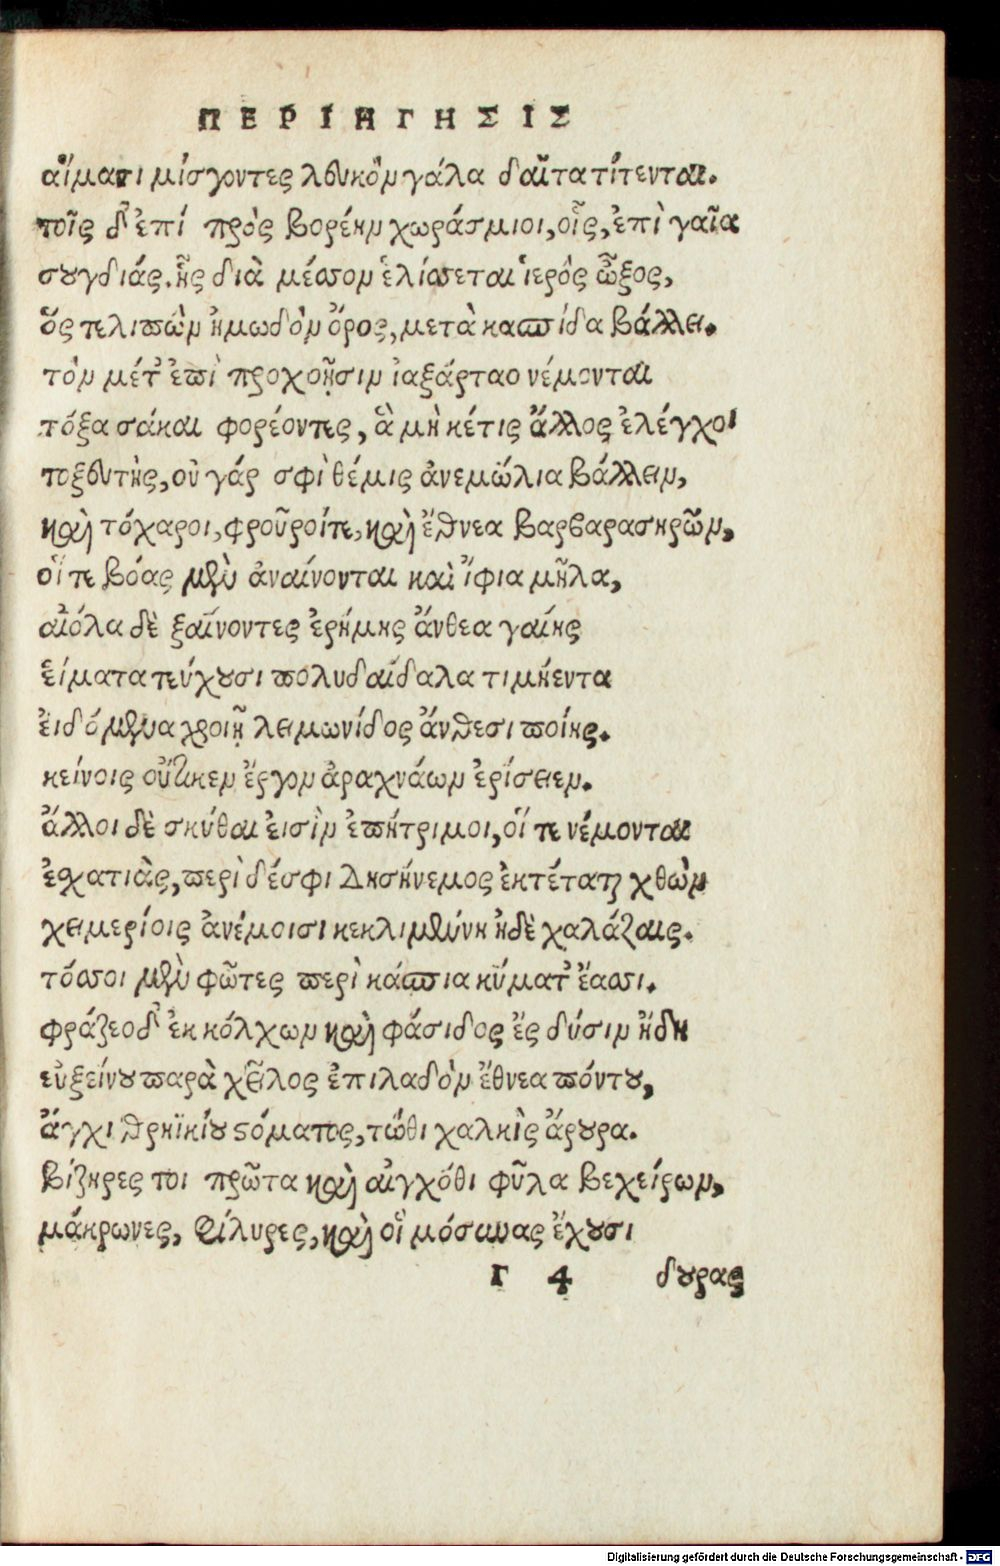 ΠΕΡΙΗΓΗΣΙΣ
αἵματι μίσγοντες λευκὸν γάλα δαῖτα τίτενται.
τοῖς δ' ἐπί πρὸς βορέην χωράσμιοι, οἷς, ἐπὶ γαῖα
σουγδιάς. ἧς διὰ μέσσον ἑλίσσεται ἱερὸς ὦξος,
ὅς τε λιπὼν ἠμωδὸν ὄρος, μετὰ κασπίδα βάλλει.
τὸν μέτ' ἐπὶ προχοῇσιν ἰαξάρταο νέμονται
τόξα σάκαι φορέοντες, ἃ μὴ κέτις ἄλλος ἐλέγχοι
τοξευτὴς, οὐ γάρ σφὶ θέμις ἀνεμώλια βάλλειν,
καὶ τόχαροι, φροῦροίτε, καὶ ἔθνεα βάρβαρα σηρῶν,
οἵ τε βόας μὲν ἀναίνονται καὶ ἴφια μῆλα,
αἰόλα δὲ ξαίνοντες ἐρήμης ἄνθεα γαίης
εἵματα τεύχουσι πολυδαίδαλα τιμήεντα
εἰδόμενα χροιῇ λειμωνίδος ἄνθεσι ποίης.
κείνοις οὔτικεν ἔργον ἀραχνάων ἐρίσειεν.
ἄλλοι δὲ σκύθαι εἰσὶν ἐπήτριμοι, οἵ τε νέμονται
ἐχατιὰς, περὶ δέσφι Δησήνεμος ἐκτέταται χθὼν
χειμερίοις ἀνέμοισι κεκλιμένη ἠδὲ χαλάζαις.
τόσσοι μὲν φῶτες περὶ κάσπια κῦματ' ἔασσι.
φράζεο δ' ἐκ κόλχων καὶ φάσιδος ἐς δύσιν ἤδη
εὐξείνου παρὰ χεῖλος ἐπιλαδὸν ἔθνεα πόντου,
ἄγχι θρηϊκίου στόματος, τώθι χαλκὶς ἄρουρα.
βίζηρες τοι πρῶτα καὶ αἰγχόθι φῦλα βεχείρων,
μάκρωνες, φίλυρες, καὶ οἳ μόσυνας ἔχουσι
Γ 4 δουρας
Digitalisierung gefördert durch die Deutsche Forschungsgemeinschaft - DFG